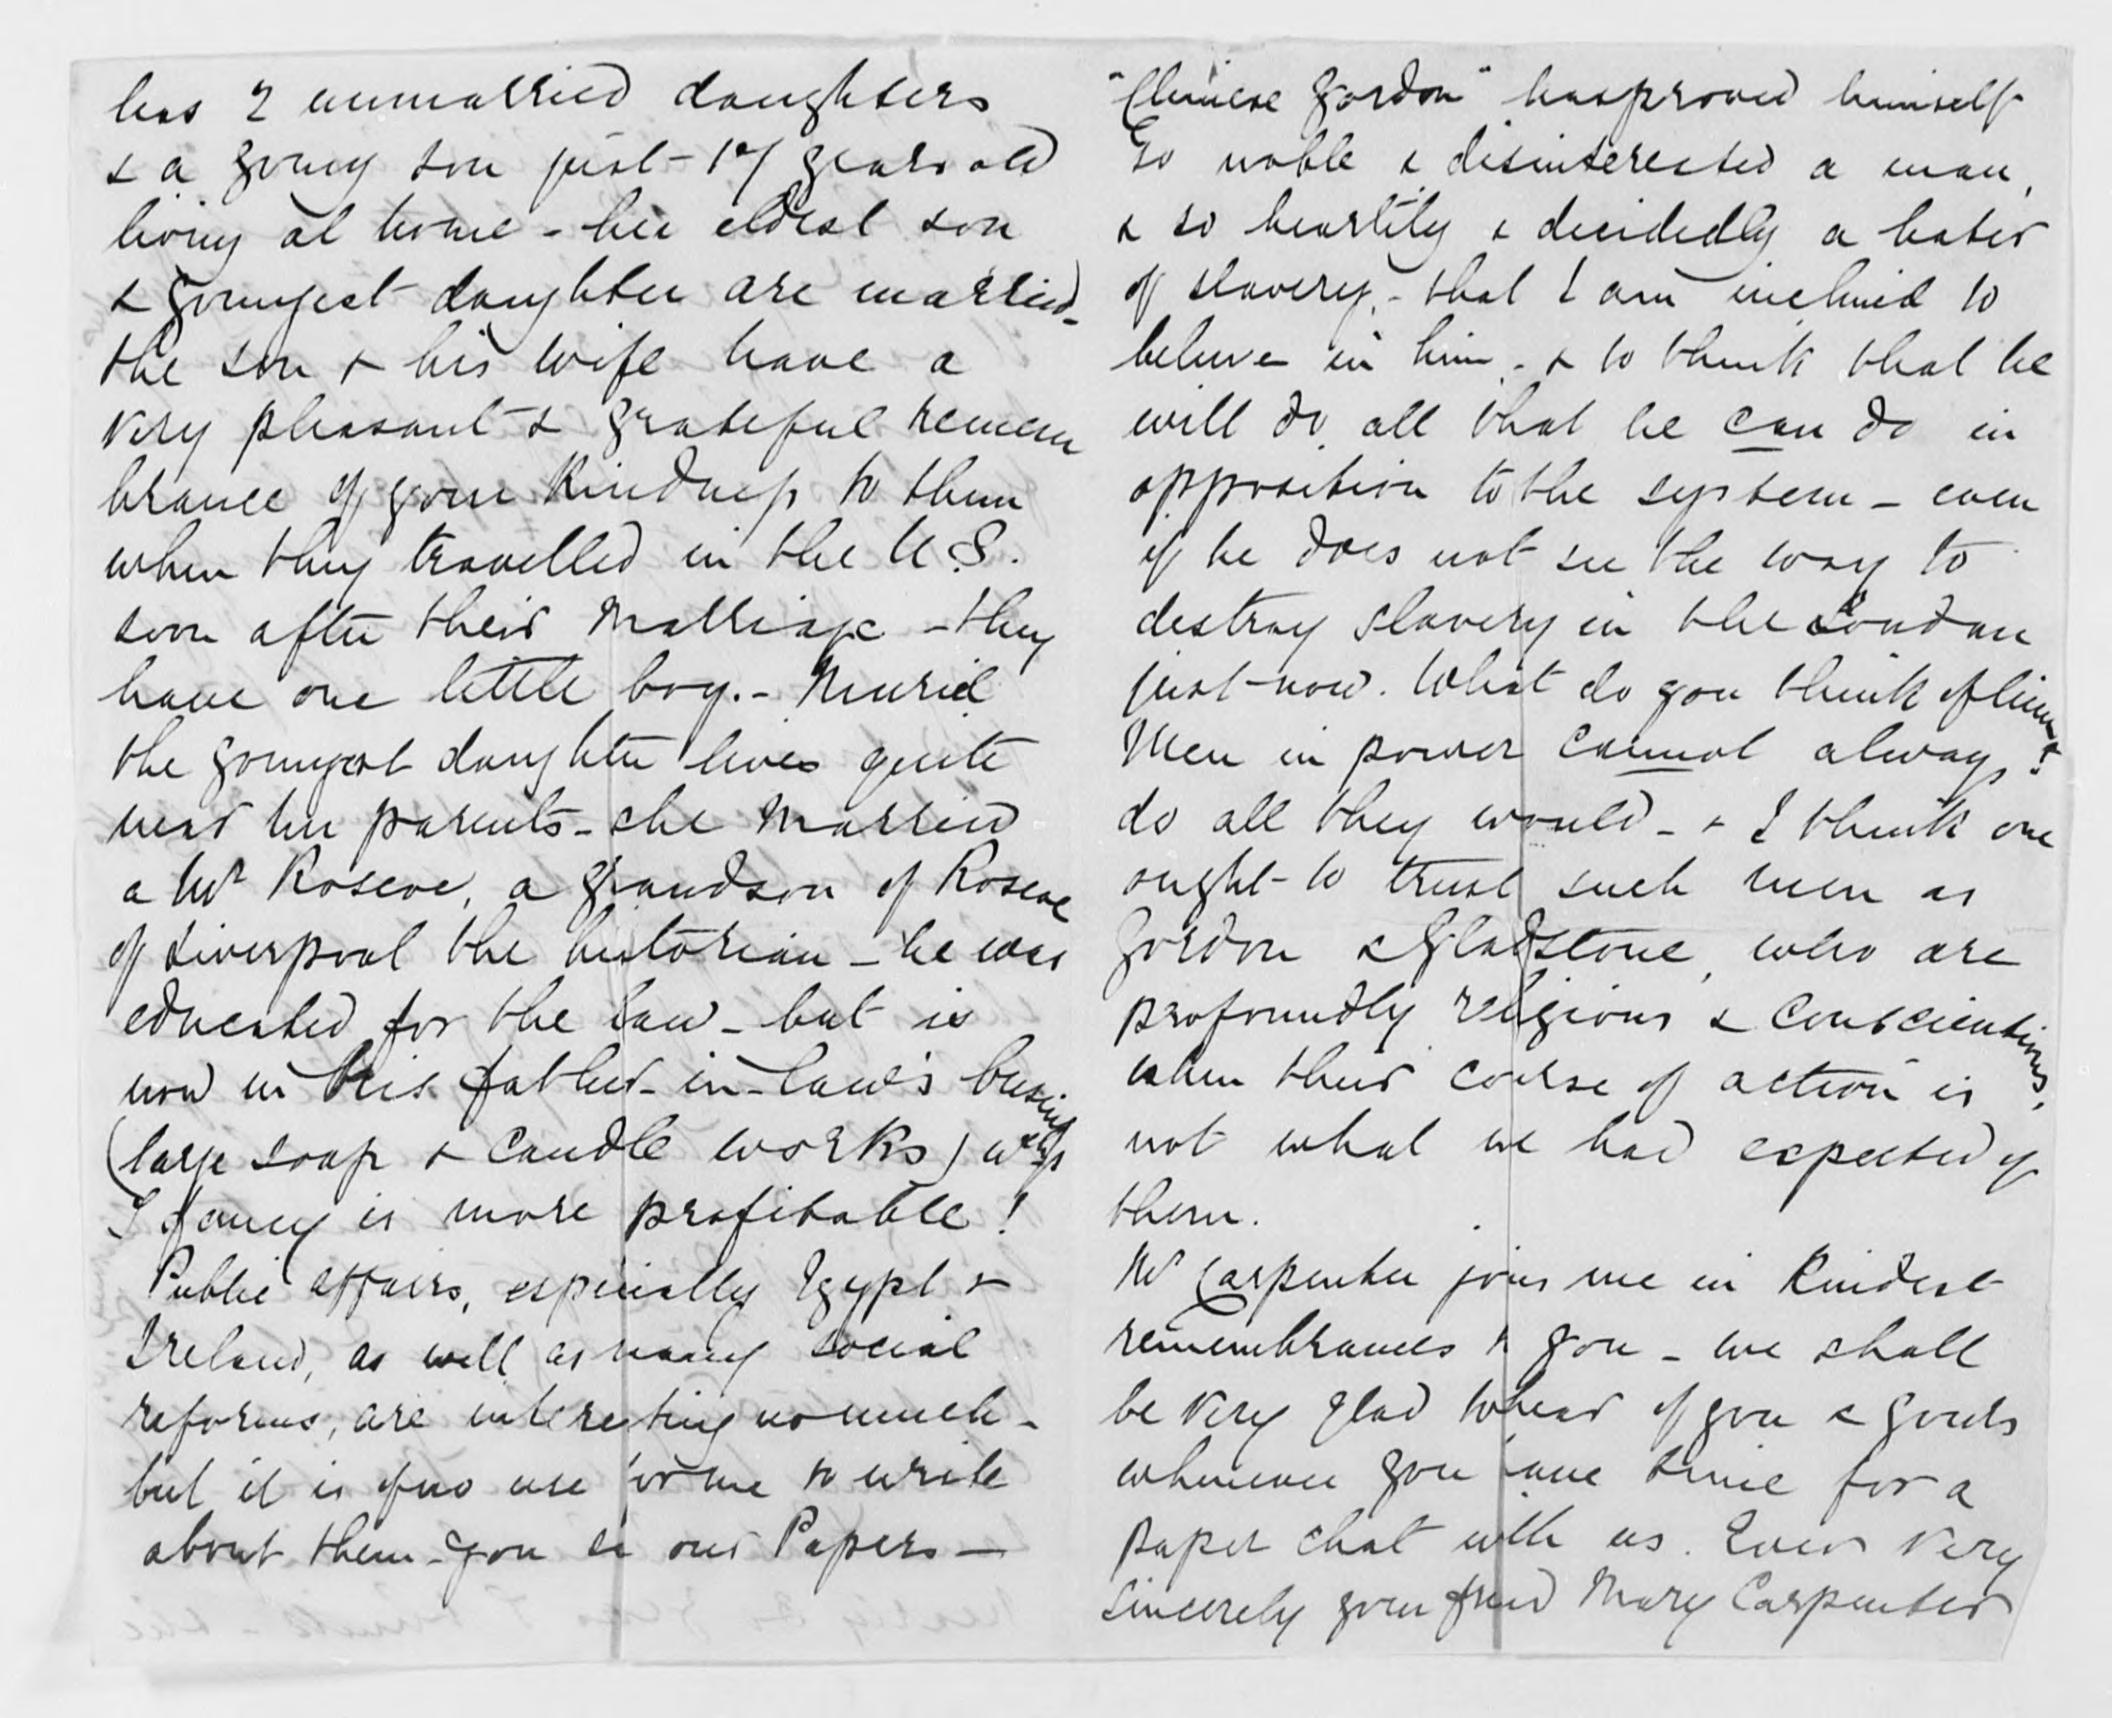 has 2 unmarried daughters
& a young son just 17 years old
living at home - her eldest son
& youngest daughter are married -
the son & his wife have a
very pleasant & grateful remem
brance of your kindness to them
when they travelled in the U.S.
soon after their marriage - they
have one little boy. - Muriel
the youngest daughter lives quite
near her parents - she married
a Mr Roscoe, a grandson of Roscoe
of Liverpool the historian - he was
educated for the law - but is
now in his father-in-law's business
(large soap & candle works) wh
I fancy is more profitable!
Public affairs, especially Egypt &
Ireland, as well as many social
reforms, are interesting us much -
but it is of no use for me to write
about them - you see our Papers —
"Chinese Gordon" has proved himself
so noble & disinterested a man,
& so heartily & decidedly a hater
of slavery, - that I am inclined to
believe in him - & to think that he
will do all that he can do in
opposition to the system - even
if he does not see the way to
destroy slavery in the Soudan
just now. What do you think of him?
Men in power cannot always
do all they would - & I think one
ought to trust such men as
Gordon & Gladstone, who are
profoundly religious & conscientious,
when their course of action is
not what we had expected of
them.
Mr Carpenter joins me in kindest
remembrances to you - we shall
be very glad to hear of you & yours
whenever you have time for a
paper chat with us. Ever very
sincerely your friend Mary Carpenter